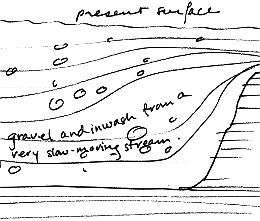 present surface
gravel and inwash from a
very slow-moving stream.